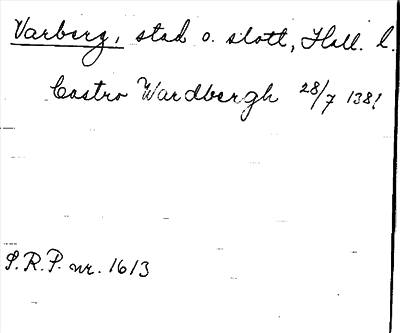 Varberg, stad o. slott, Hall. l.
Castro Wardbergh 28/7 1381
S.R.P. nr. 1613